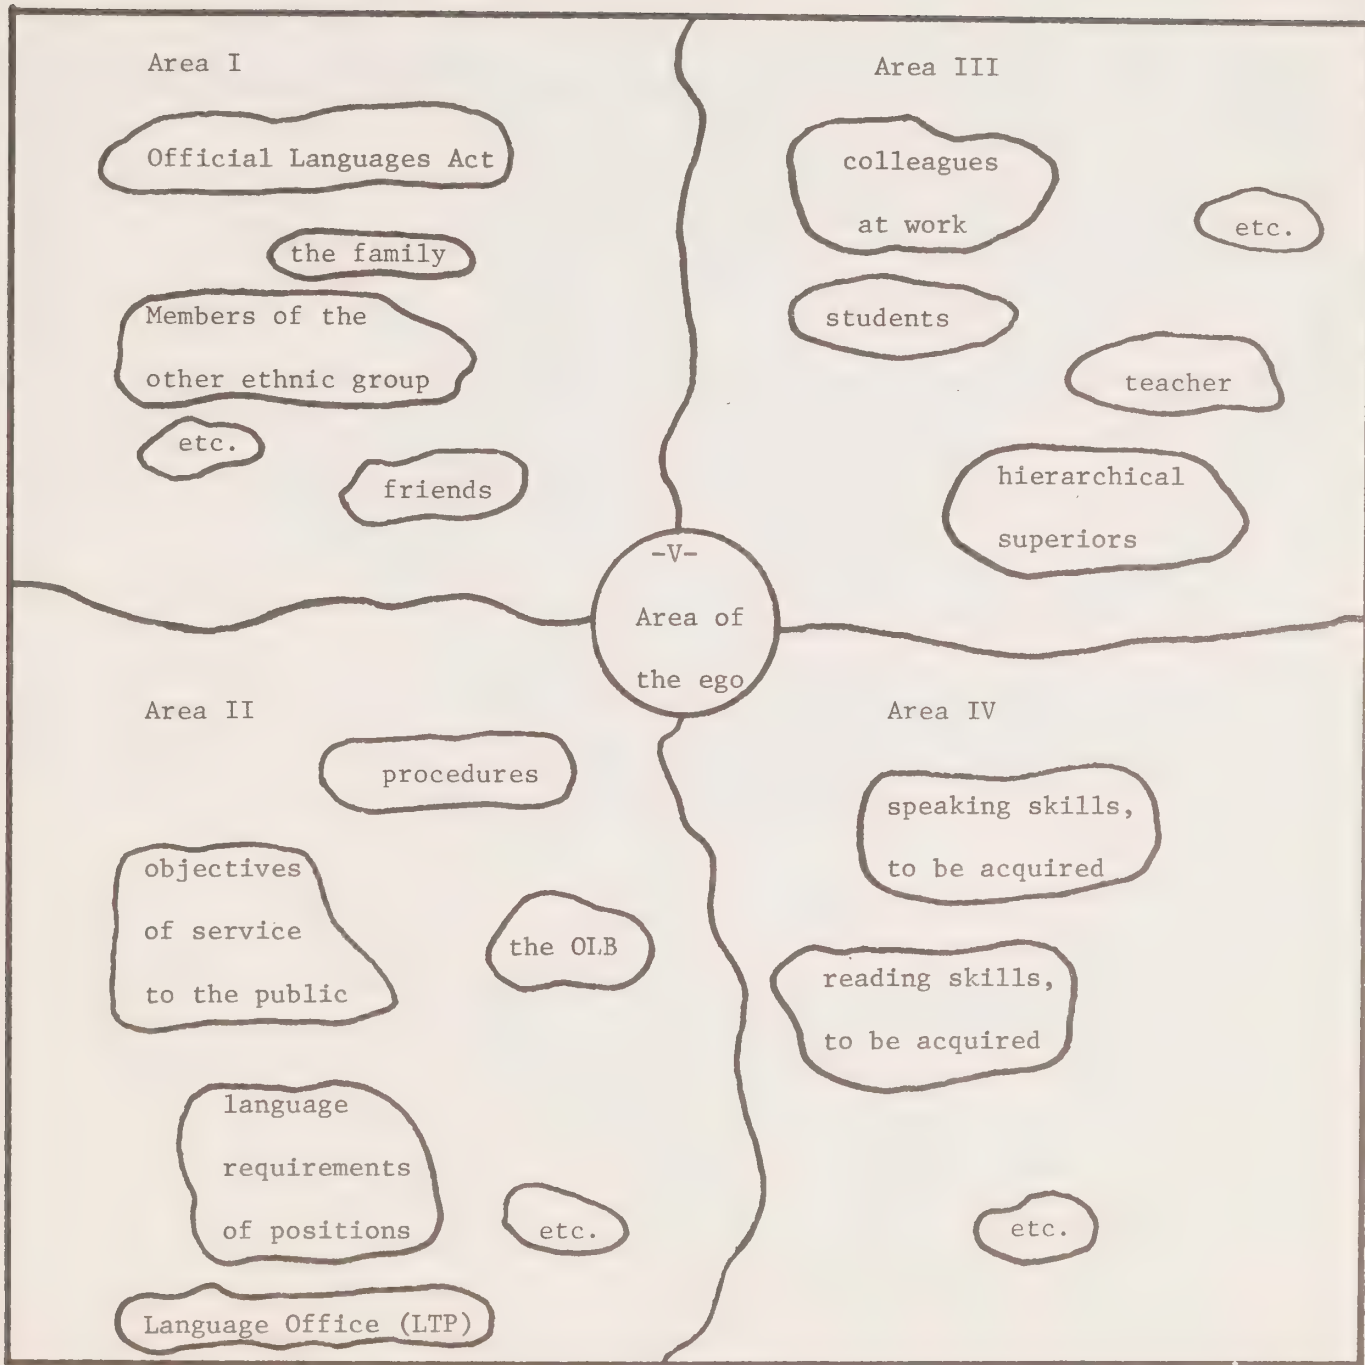 Area I
Official Languages Act
the family
Members of the
other ethnic group
etc.
friends
Area III
colleagues
at work
etc.
students
teacher
hierarchical
superiors
-V-
Area of
the ego
Area II
procedures
objectives
of service
to the public
the OLB
language
requirements
of positions
etc.
Language Office (LTP)
Area IV
speaking skills,
to be acquired
reading skills,
to be acquired
etc.